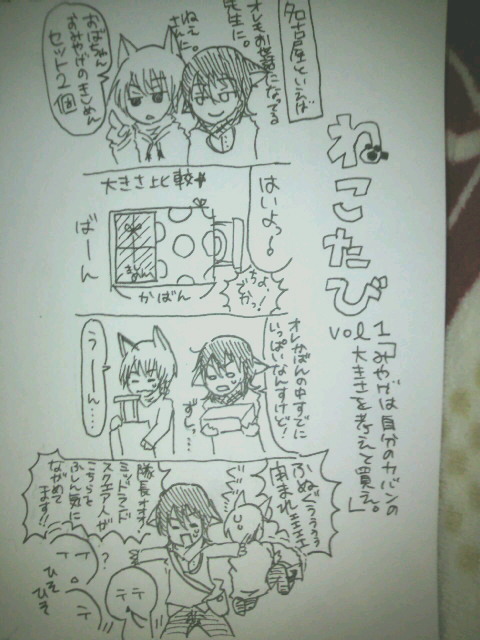 ねこたび
vol 1
「みやげは自分のカバンの
大きさを考えて買え。」
名古屋といえば
オレもお世話になってる
先生に。
ねえ
さんに。
おばちゃん
おみやげのきしめん
セット2個
はいよっ。
大きさ比較
ばーん
きしめん
かばん
ちょ、
でかっ!
オレかばんの中すでに
いっぱいなんすけど!
ずしっ…
うーん…
ふぬぐぅぅぅ
隊長オオ!
ミッドランド
スクエア人が
こちらを
ふしん気に
ながめて
ます!!
?
ひそ
ひそ